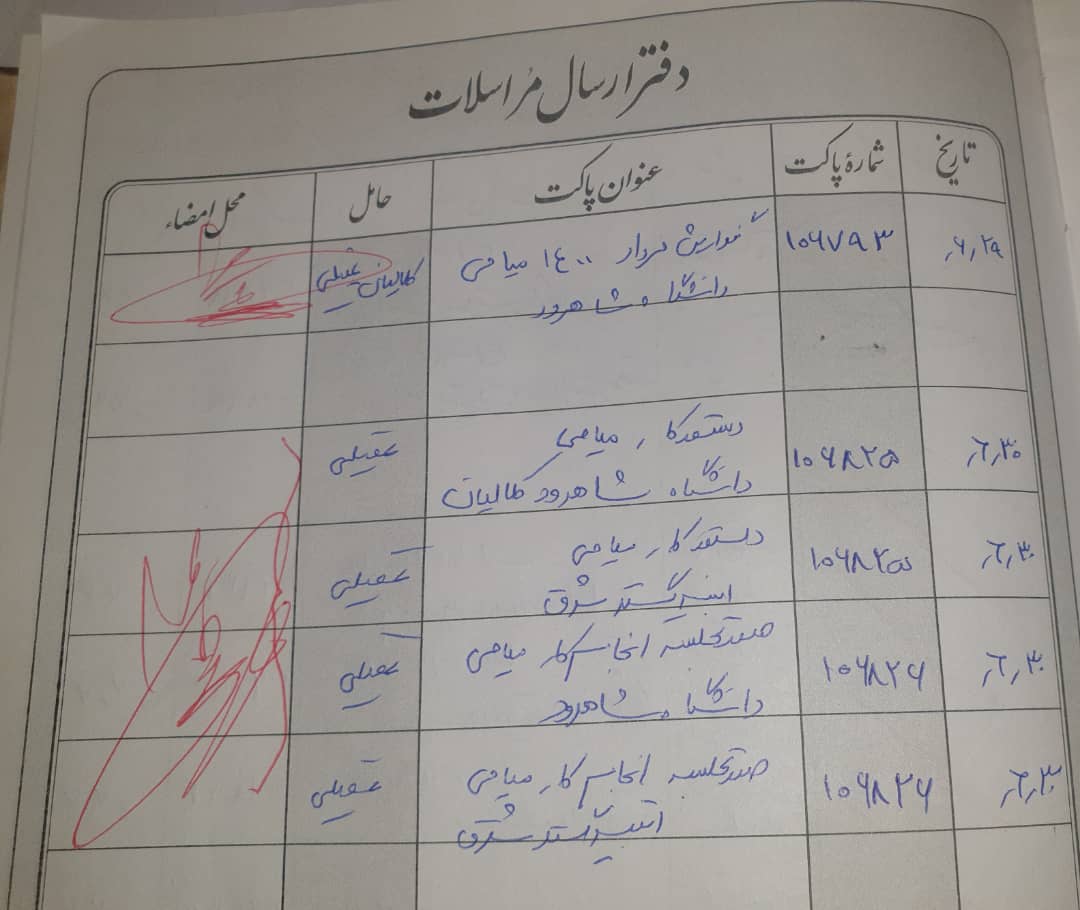 دفتر ارسال مراسلات
تاریخ شمارهٔ پاکت عنوان پاکت حامل محل امضاء
۰۶٫۲۹ ۱۰۶۷۹۳ گزارش مرداد ۱۴۰۰ میامی کالیان عقیلی
دانشگاه شاهرود
۰۶٫۳۰ ۱۰۶۸۲۵ دستور کار میامی عقیلی
دانشگاه شاهرود کالیان
۰۶٫۳۰ ۱۰۶۸۲۵ دستور کار میامی عقیلی
ابنیه گستر شرق
۰۶٫۳۰ ۱۰۶۸۲۶ صورتجلسه انجام کار میامی عقیلی
دانشگاه شاهرود
۰۶٫۳۰ ۱۰۶۸۲۶ صورتجلسه انجام کار میامی عقیلی
ابنیه گستر شرق